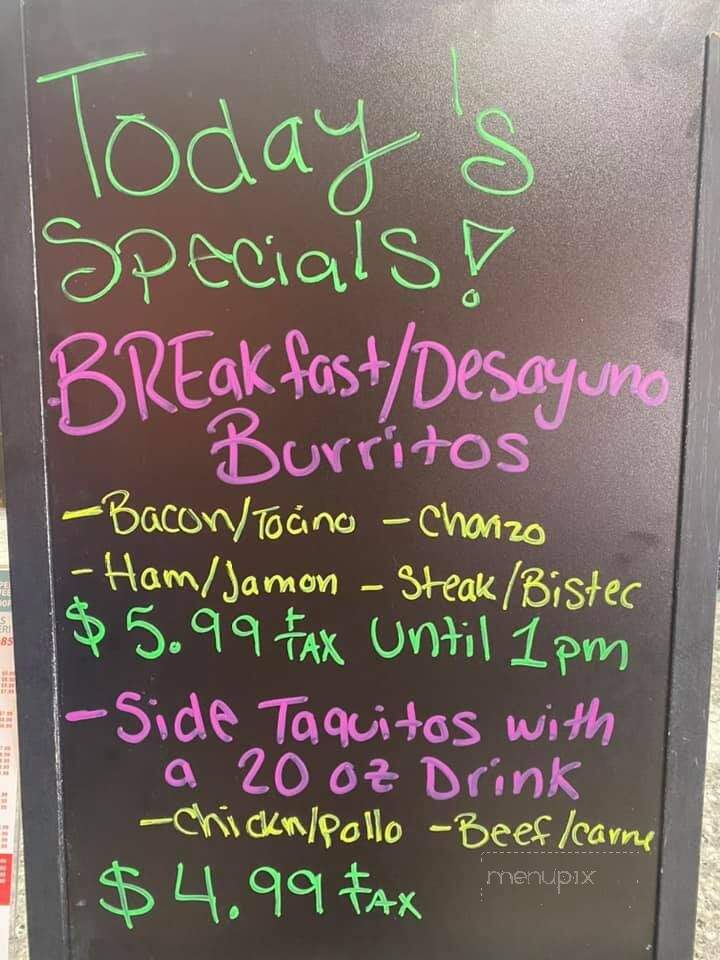 Today's
Specials!
BREakfast/Desayuno
Burritos
- Bacon/Tocino - Chorizo
- Ham/Jamon - Steak/Bistec
$5.99 +TAX until 1pm
- Side Taquitos with
a 20 oz Drink
- Chickn/pollo - Beef/carne
$4.99 +TAX
menupix